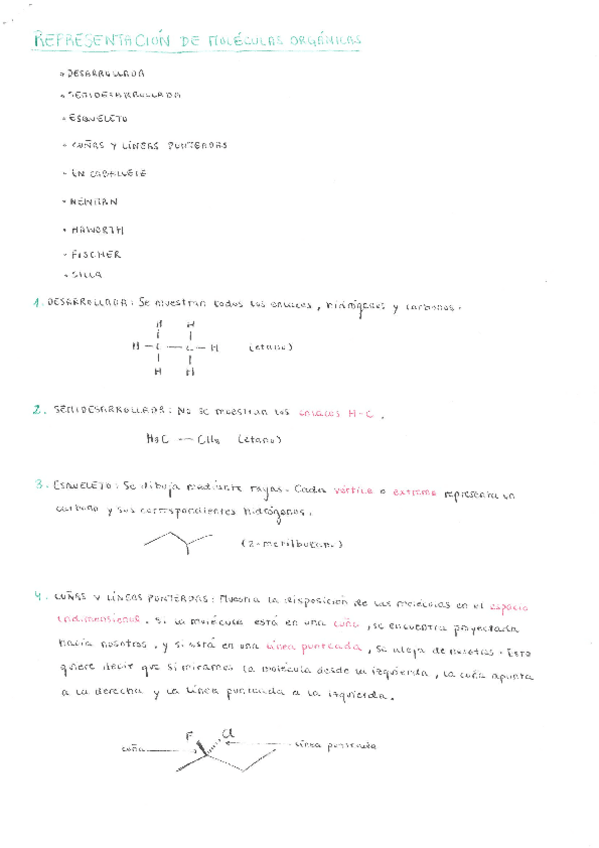 REPRESENTACIÓN DE MOLÉCULAS ORGÁNICAS
• DESARROLLADA
• SEMIDESARROLLADA
• ESQUELETO
• CUÑAS Y LÍNEAS PUNTEADAS
• EN CABALLETE
• NEWMAN
• HAWORTH
• FISCHER
• SILLA
1. DESARROLLADA: Se muestran todos los enlaces, hidrógenos y carbonos.
H H
H – C – C – H (etano)
H H
2. SEMIDESARROLLADA: No se muestran los enlaces H-C.
H3C — CH3 (etano)
3. ESQUELETO: Se dibuja mediante rayas. Cada vértice o extremo representa un
carbono y sus correspondientes hidrógenos.
4. CUÑAS Y LÍNEAS PUNTEADAS: Muestra la disposición de las moléculas en el espacio
tridimensional. Si la molécula está en una cuña, se encuentra proyectada
hacia nosotros, y si está en una línea punteada, se aleja de nosotros. Esto
quiere decir que si miramos la molécula desde la izquierda, la cuña apunta
a la derecha y la línea punteada a la izquierda.
F Cl
cuña línea punteada